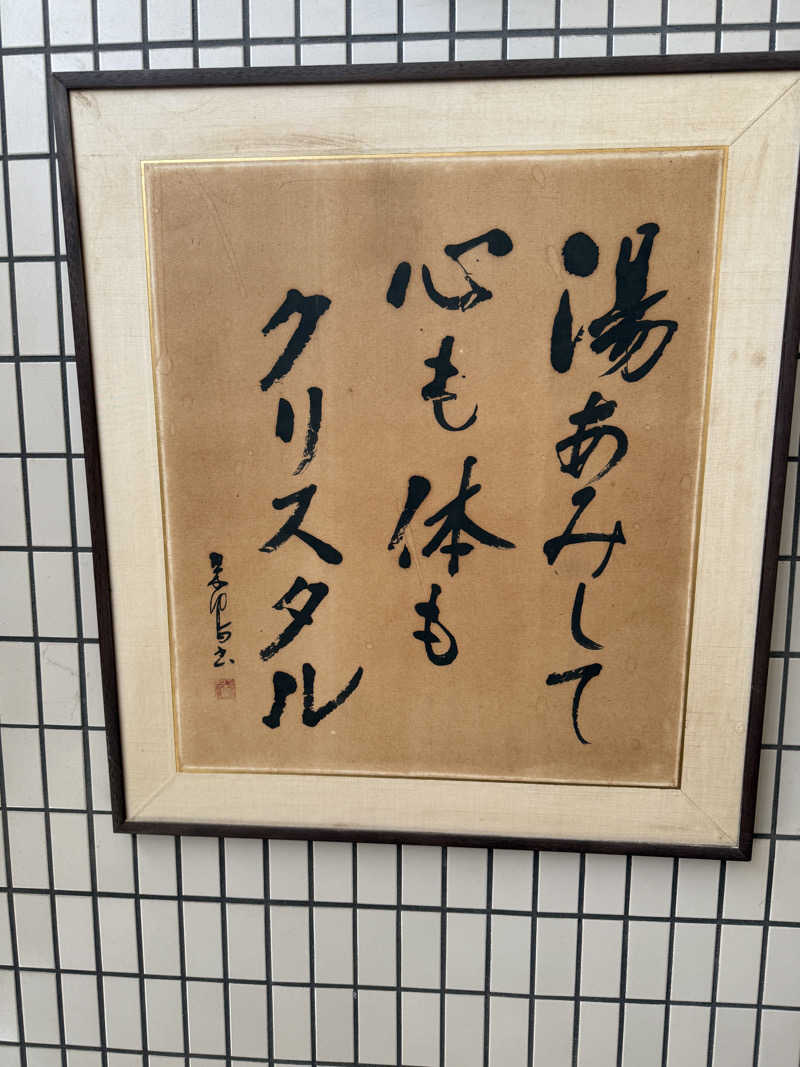 湯あみして
心も体も
クリスタル